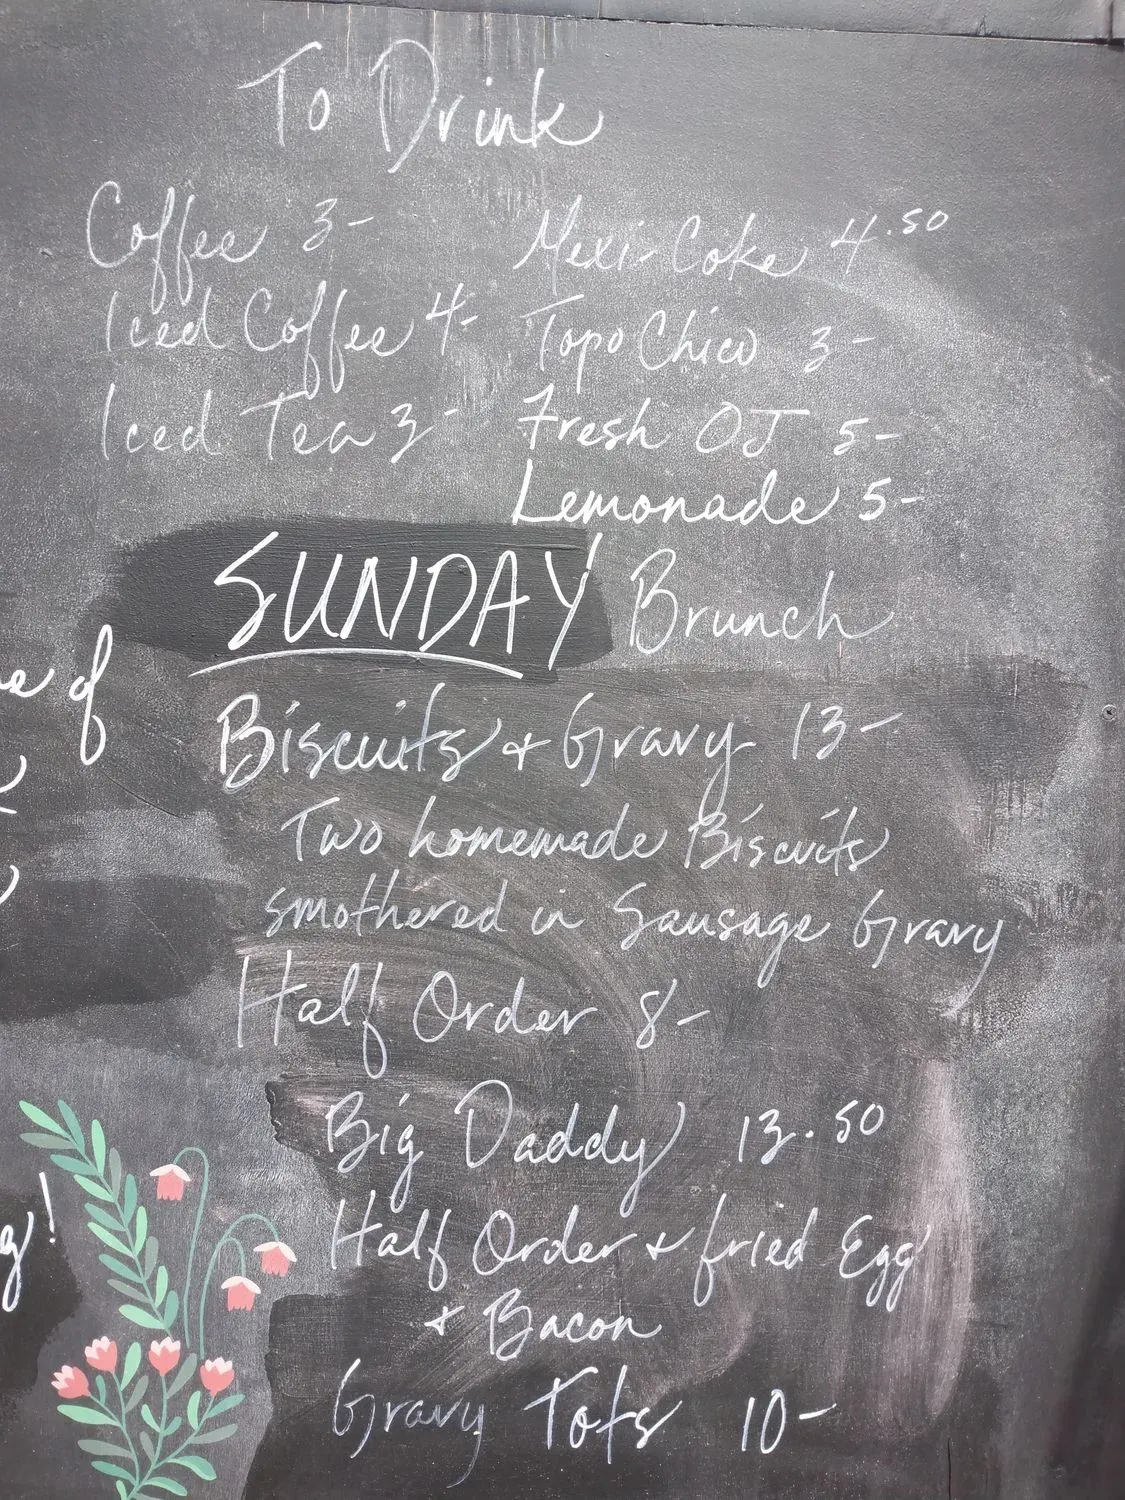 To Drink
Coffee 3-
Iced Coffee 4-
Iced Tea 3-
Mexi-Coke 4.50
Topo Chico 3-
Fresh OJ 5-
Lemonade 5-
SUNDAY Brunch
Biscuits + Gravy 13-
Two homemade Biscuits
smothered in Sausage Gravy
Half Order 8-
Big Daddy 13.50
Half Order + fried Egg
+ Bacon
Gravy Tots 10-
of